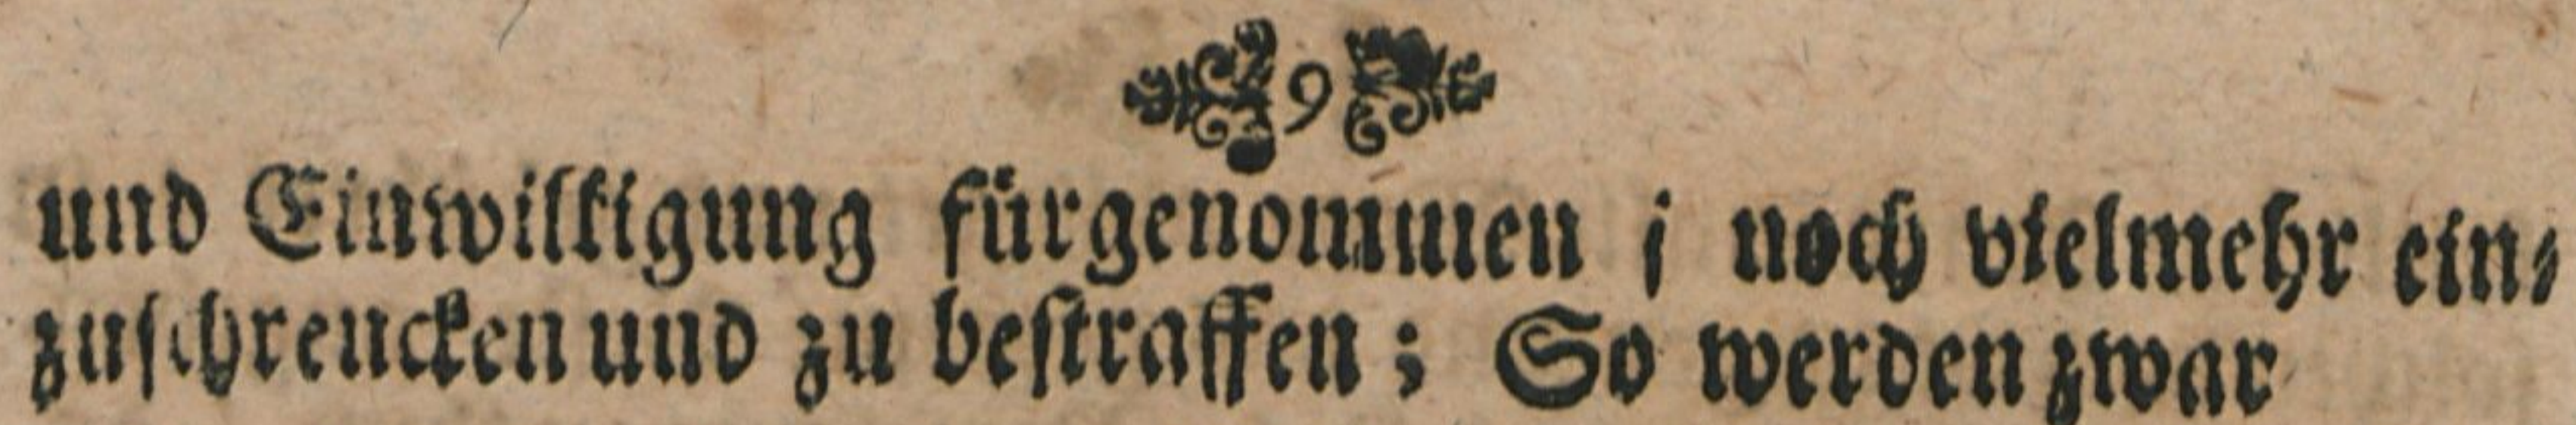 9
und Einwilligung fürgenommen / noch vielmehr ein⸗
zuschrencken und zu bestraffen; So werden zwar